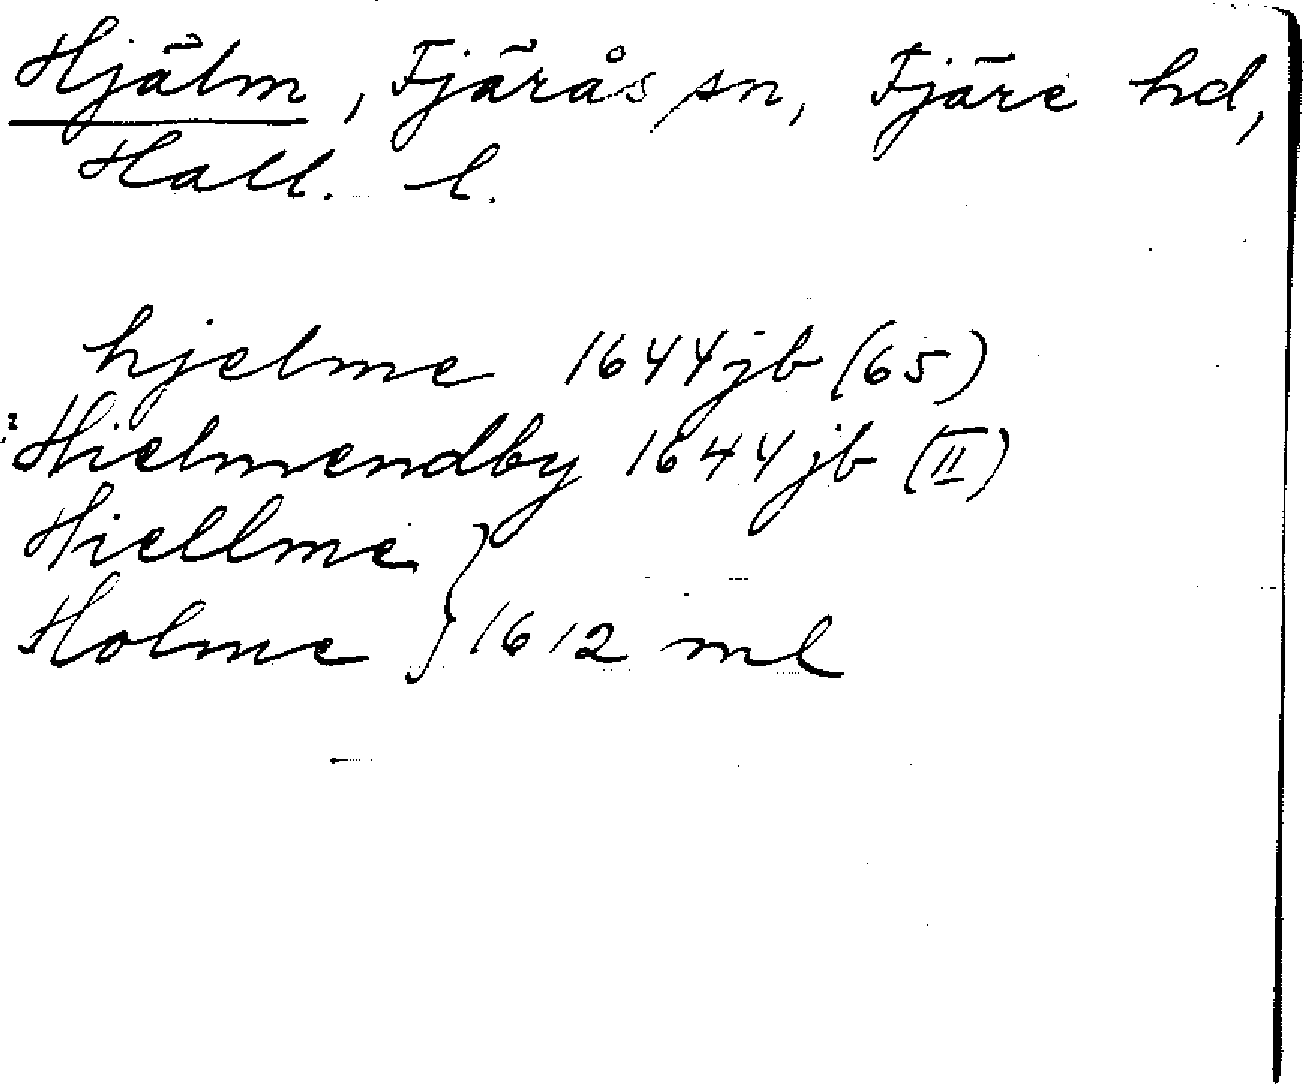 Hjälm, Fjärås sn, Fjäre hd,
Hall. l.
hjelme 1644 jb (65)
Hielmendby 1644 jb (II)
Hiellme
Holme } 1612 ml